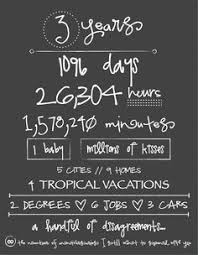 3 years
1096 days
26,304 hours
1,578,240 minutes
1 baby millions of kisses
5 CITIES // 9 HOMES
4 TROPICAL VACATIONS
2 DEGREES ♡ 6 JOBS ♡ 3 CARS
a handful of disagreements...
(∞) the number of I still want to spend with you